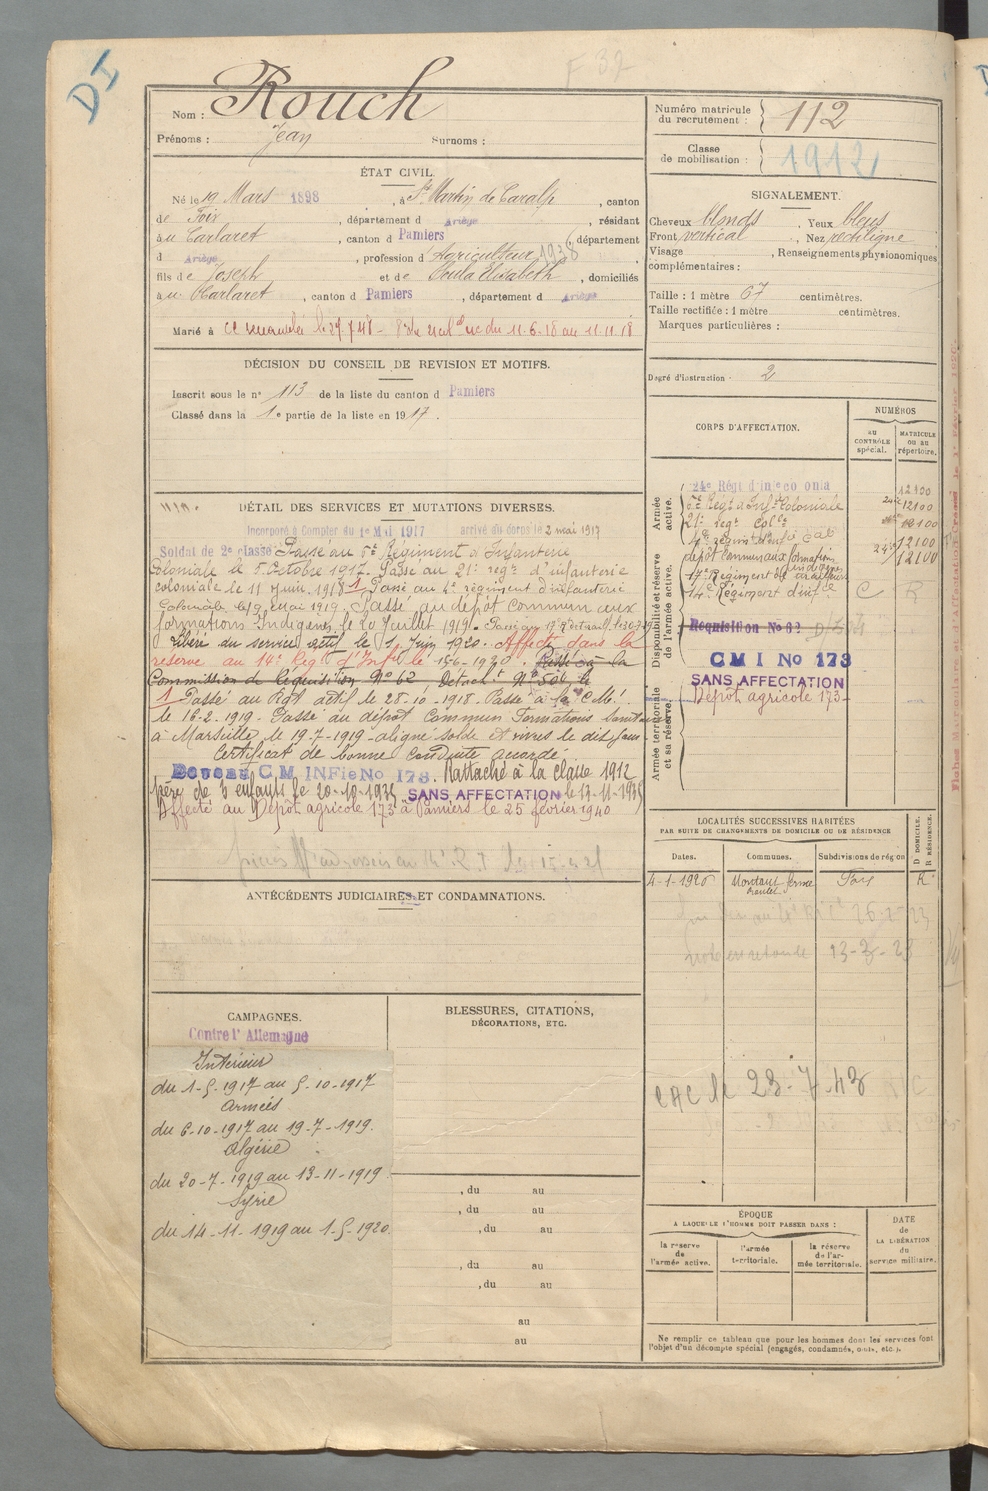 DI
F 32
Nom : Rouch
Prénoms : Jean Surnoms :
ÉTAT CIVIL.
Né le 19 Mars 1898 , à St Martin de Caralp , canton
de Foix , département d Ariège , résidant
au Carlaret , canton d Pamiers , département
d Ariège , profession d Agriculteur 1938
fils de Joseph et de Soula Elisabeth , domiciliés
au Carlaret , canton d Pamiers , département d Ariège
Marié à
DÉCISION DU CONSEIL DE REVISION ET MOTIFS.
Inscrit sous le n° 113 de la liste du canton d Pamiers
Classé dans la 1e partie de la liste en 1917 .
DÉTAIL DES SERVICES ET MUTATIONS DIVERSES.
Incorporé à Compter du 1er Mai 1917 arrivé du corps le 2 mai 1917
Soldat de 2e classe Passé au 5e Régiment d'Infanterie
Coloniale le 5 Octobre 1917. Passé au 21e regt d'infanterie
coloniale le 11 juin 1918 1 Passé au 4e régiment d'infanterie
Coloniale le 9 Mai 1919. Passé au dépôt commun aux
formations Indigènes, le 20 Juillet 1919.
Libéré du service actif le 1 Juin 1920. Affecté dans la
réserve au 14e Regt d'Infie le 15-6-1920. Passé à la
Commission de Requisition N° 62 Detacht N° 504, le
1 Passé au Rgt actif le 28-10-1918. Passé à la C.M.
le 16-2-1919. Passé au dépôt Commun Formations
à Marseille, le 19-7-1919 aligné solde et vivres le dit jour
Certificat de bonne conduite accordé
C M INFie No 173. Rattaché à la classe 1912
père de 3 enfants le 20-10-1935 SANS AFFECTATION le 13-11-1935
Affecté au Dépôt agricole 173 à Pamiers le 25 février 1940
ANTÉCÉDENTS JUDICIAIRES ET CONDAMNATIONS.
CAMPAGNES.
Contre l'Allemagne
Intérieur
du 1-5-1917 au 5-10-1917
Armées
du 6-10-1917 au 19-7-1919.
Algérie
du 20-7-1919 au 13-11-1919
Syrie
du 14-11-1919 au 1-5-1920.
BLESSURES, CITATIONS,
DÉCORATIONS, ETC.
, du au
, du au
, du au
, du au
, du au
au
au
Numéro matricule
du recrutement : 112
Classe
de mobilisation : 1912
SIGNALEMENT.
Cheveux blonds , Yeux bleus
Front vertical , Nez rectiligne
Visage , Renseignements physionomiques
complémentaires :
Taille : 1 mètre 67 centimètres.
Taille rectifiée : 1 mètre centimètres.
Marques particulières :
Degré d'instruction : 2
CORPS D'AFFECTATION.
NUMÉROS
au
CONTRÔLE
spécial.
MATRICULE
ou au
répertoire.
Armée
active.
24e Régt d'infie colonia 12100
5e Régt d'Infie Coloniale 12100
21e regt Colle 12100
4e regiment d'infie Cale 12100
dépôt commun aux formations indigènes 12100
17e Régiment de tirailleurs
Disponibilité et réserve
de l'armée active.
14e Régiment d'infie C R
Requisition No 62
Armée territoriale
et sa réserve.
C M I No 173
SANS AFFECTATION
Dépôt agricole 173
LOCALITÉS SUCCESSIVES HABITÉES
PAR SUITE DE CHANGEMENTS DE DOMICILE OU DE RÉSIDENCE
Dates. Communes. Subdivisions de région
D DOMICILE.
R RÉSIDENCE.
4-1-1926 Montaut ferme Foix R
26-2-23
13-3-23
CAC le 23-7-43
ÉPOQUE
A LAQUELLE L'HOMME DOIT PASSER DANS :
la réserve
de
l'armée active.
l'armée
territoriale.
la réserve
de l'ar-
mée territoriale.
DATE
de
LA LIBÉRATION
du
service militaire.
Ne remplir ce tableau que pour les hommes dont les services font
l'objet d'un décompte spécial (engagés, condamnés, omis, etc.).